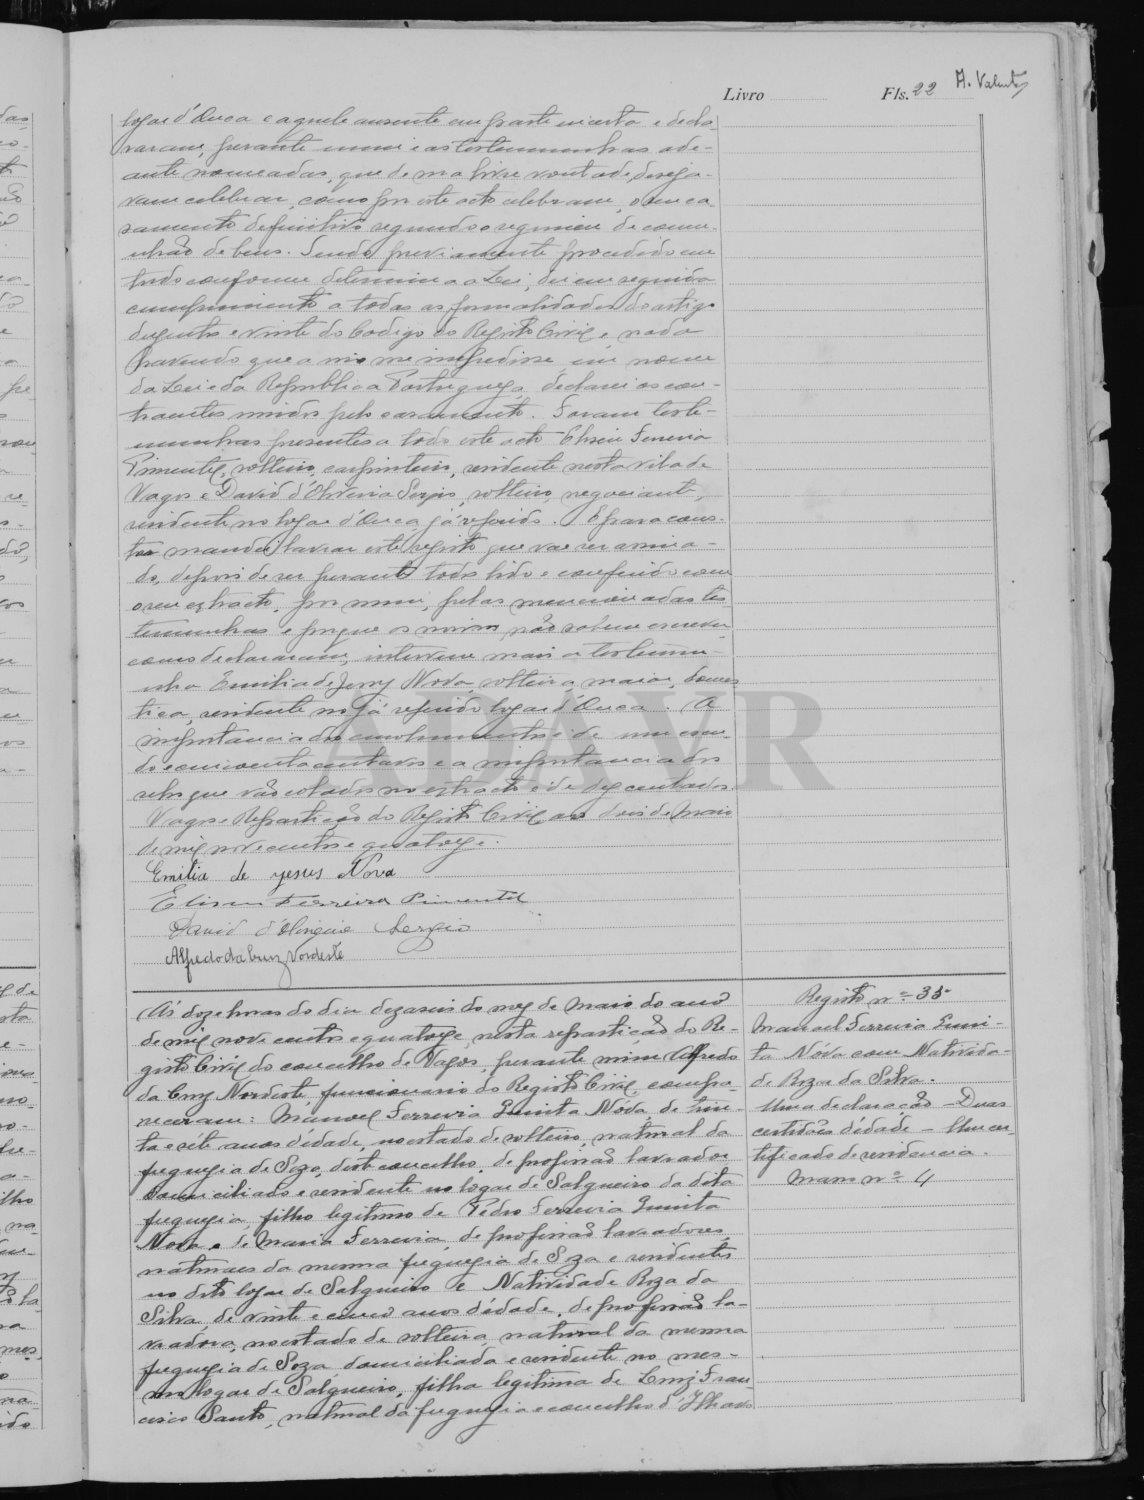 Livro Fls. 22 A. Valente
logar d'Ouca e aquele ausente em parte incerta e decla-
raram, perante mim e as testemunhas ade-
ante nomeadas, que de sua livre vontade, deseja-
vam celebrar, como por este acto celebram, o seu ca
samento definitivo segundo o regimen de comu-
nhão de bens. Sendo previamente procedido em
tudo conforme determina a Lei, dei em seguida
cumprimento a todas as formalidades do artigo
duzentos e vinte do Codigo do Registo Civil e, nada
havendo que a isso me impedisse em nome
da Lei e da Republica Portugueza, declarei os con-
traentes unidos pelo casamento. Foram teste-
munhas presentes a todo este acto Eliseu Ferreira
Pimentel, solteiro, carpinteiro, residente nesta vila de
Vagos e David d'Oliveira Sergio, solteiro, negociante,
residente no logar d'Ouca, já referido. E para cons-
tar mandei lavrar este registo que vae ser assina-
do, depois de ser perante todos lido e conferido com
o seu extracto, por mim, pelas mencionadas tes
temunhas e porque os noivos não sabem escrever
como declararam, interveiu mais a testemu-
nha Emilia de Jesus Nova, solteira, maior, domes
tica, residente no já referido logar d'Ouca. A
importancia dos emolumentos é de um escu-
do e cincoenta centavos e a importancia dos
selos que vão colados no extracto é de dez centavos.
Vagos e Repartição do Registo Civil aos dois de Maio
de mil novecentos e quatorze.
Emilia de yesus Nova
Eliseu Ferreira Pimentel
David d'Oliveira Sergio
Alfredo da Cruz Nordeste
Ás doze horas do dia dezaseis do mez de Maio do ano
de mil nove centos e quatorze, nesta repartição do Re-
gisto Civil do concelho de Vagos, perante mim Alfredo
da Cruz Nordeste, funcionario do Registo Civil, compa
receram: Manoel Ferreira Gunita Nóva, de trin-
ta e séte anos d'edade, no estado de solteiro, natural da
freguezia de Soza, deste concelho, de profissão lavrador
domiciliado e residente no logar de Salgueiro da dita
freguezia, filho legitimo de Pedro Ferreira Gunita
Nova e de Maria Ferreira, de profissão lavradores,
naturaes da mesma freguezia de Soza e residentes
no dito logar de Salgueiro e Natividade Roza da
Silva, de vinte e cinco anos d'edade, de profissão la-
vradora, no estado de solteira, natural da mesma
freguezia de Soza, domiciliada e residente no mes-
mo logar de Salgueiro, filha legitima de Luiz Fran
cisco Santo, natural da freguezia e concelho d'Ilhavo
Registo nº 35
Manoel Ferreira Guni-
ta Nóva com Nativida-
de Roza da Silva.
Uma declaração - Duas
certidões d'edade - Um cer-
tificado de residencia.
Maço nº 4
ADAVR